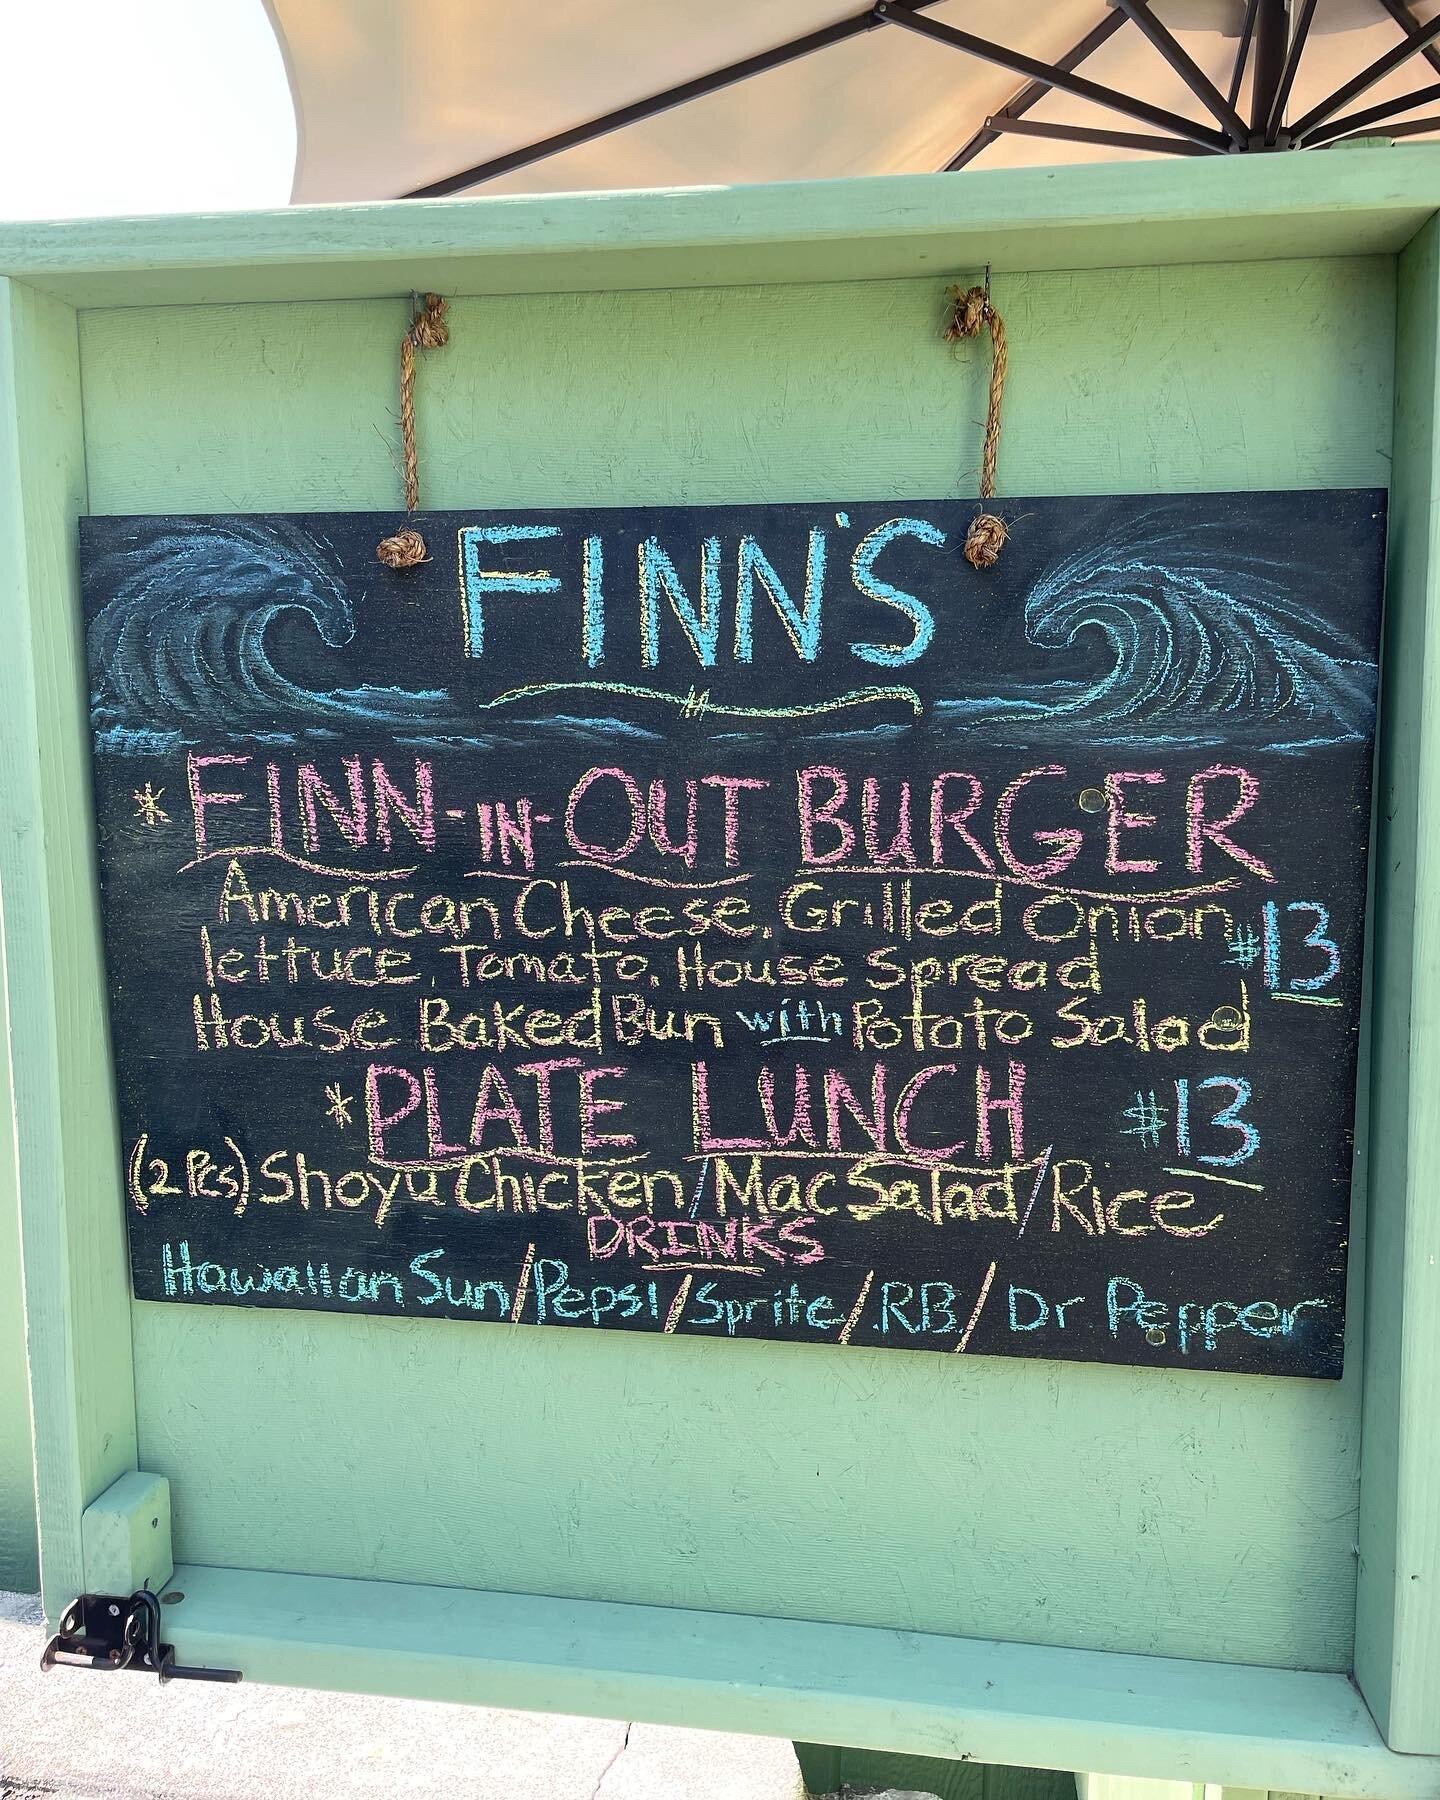 FINN'S
* FINN-IN-OUT BURGER
American Cheese, Grilled Onion
lettuce, Tomato, House Spread
$13
House Baked Bun with Potato Salad
* PLATE LUNCH $13
(2 Pcs) Shoyu Chicken / Mac Salad / Rice
DRINKS
Hawaiian Sun / Pepsi / Sprite / R.B. / Dr Pepper